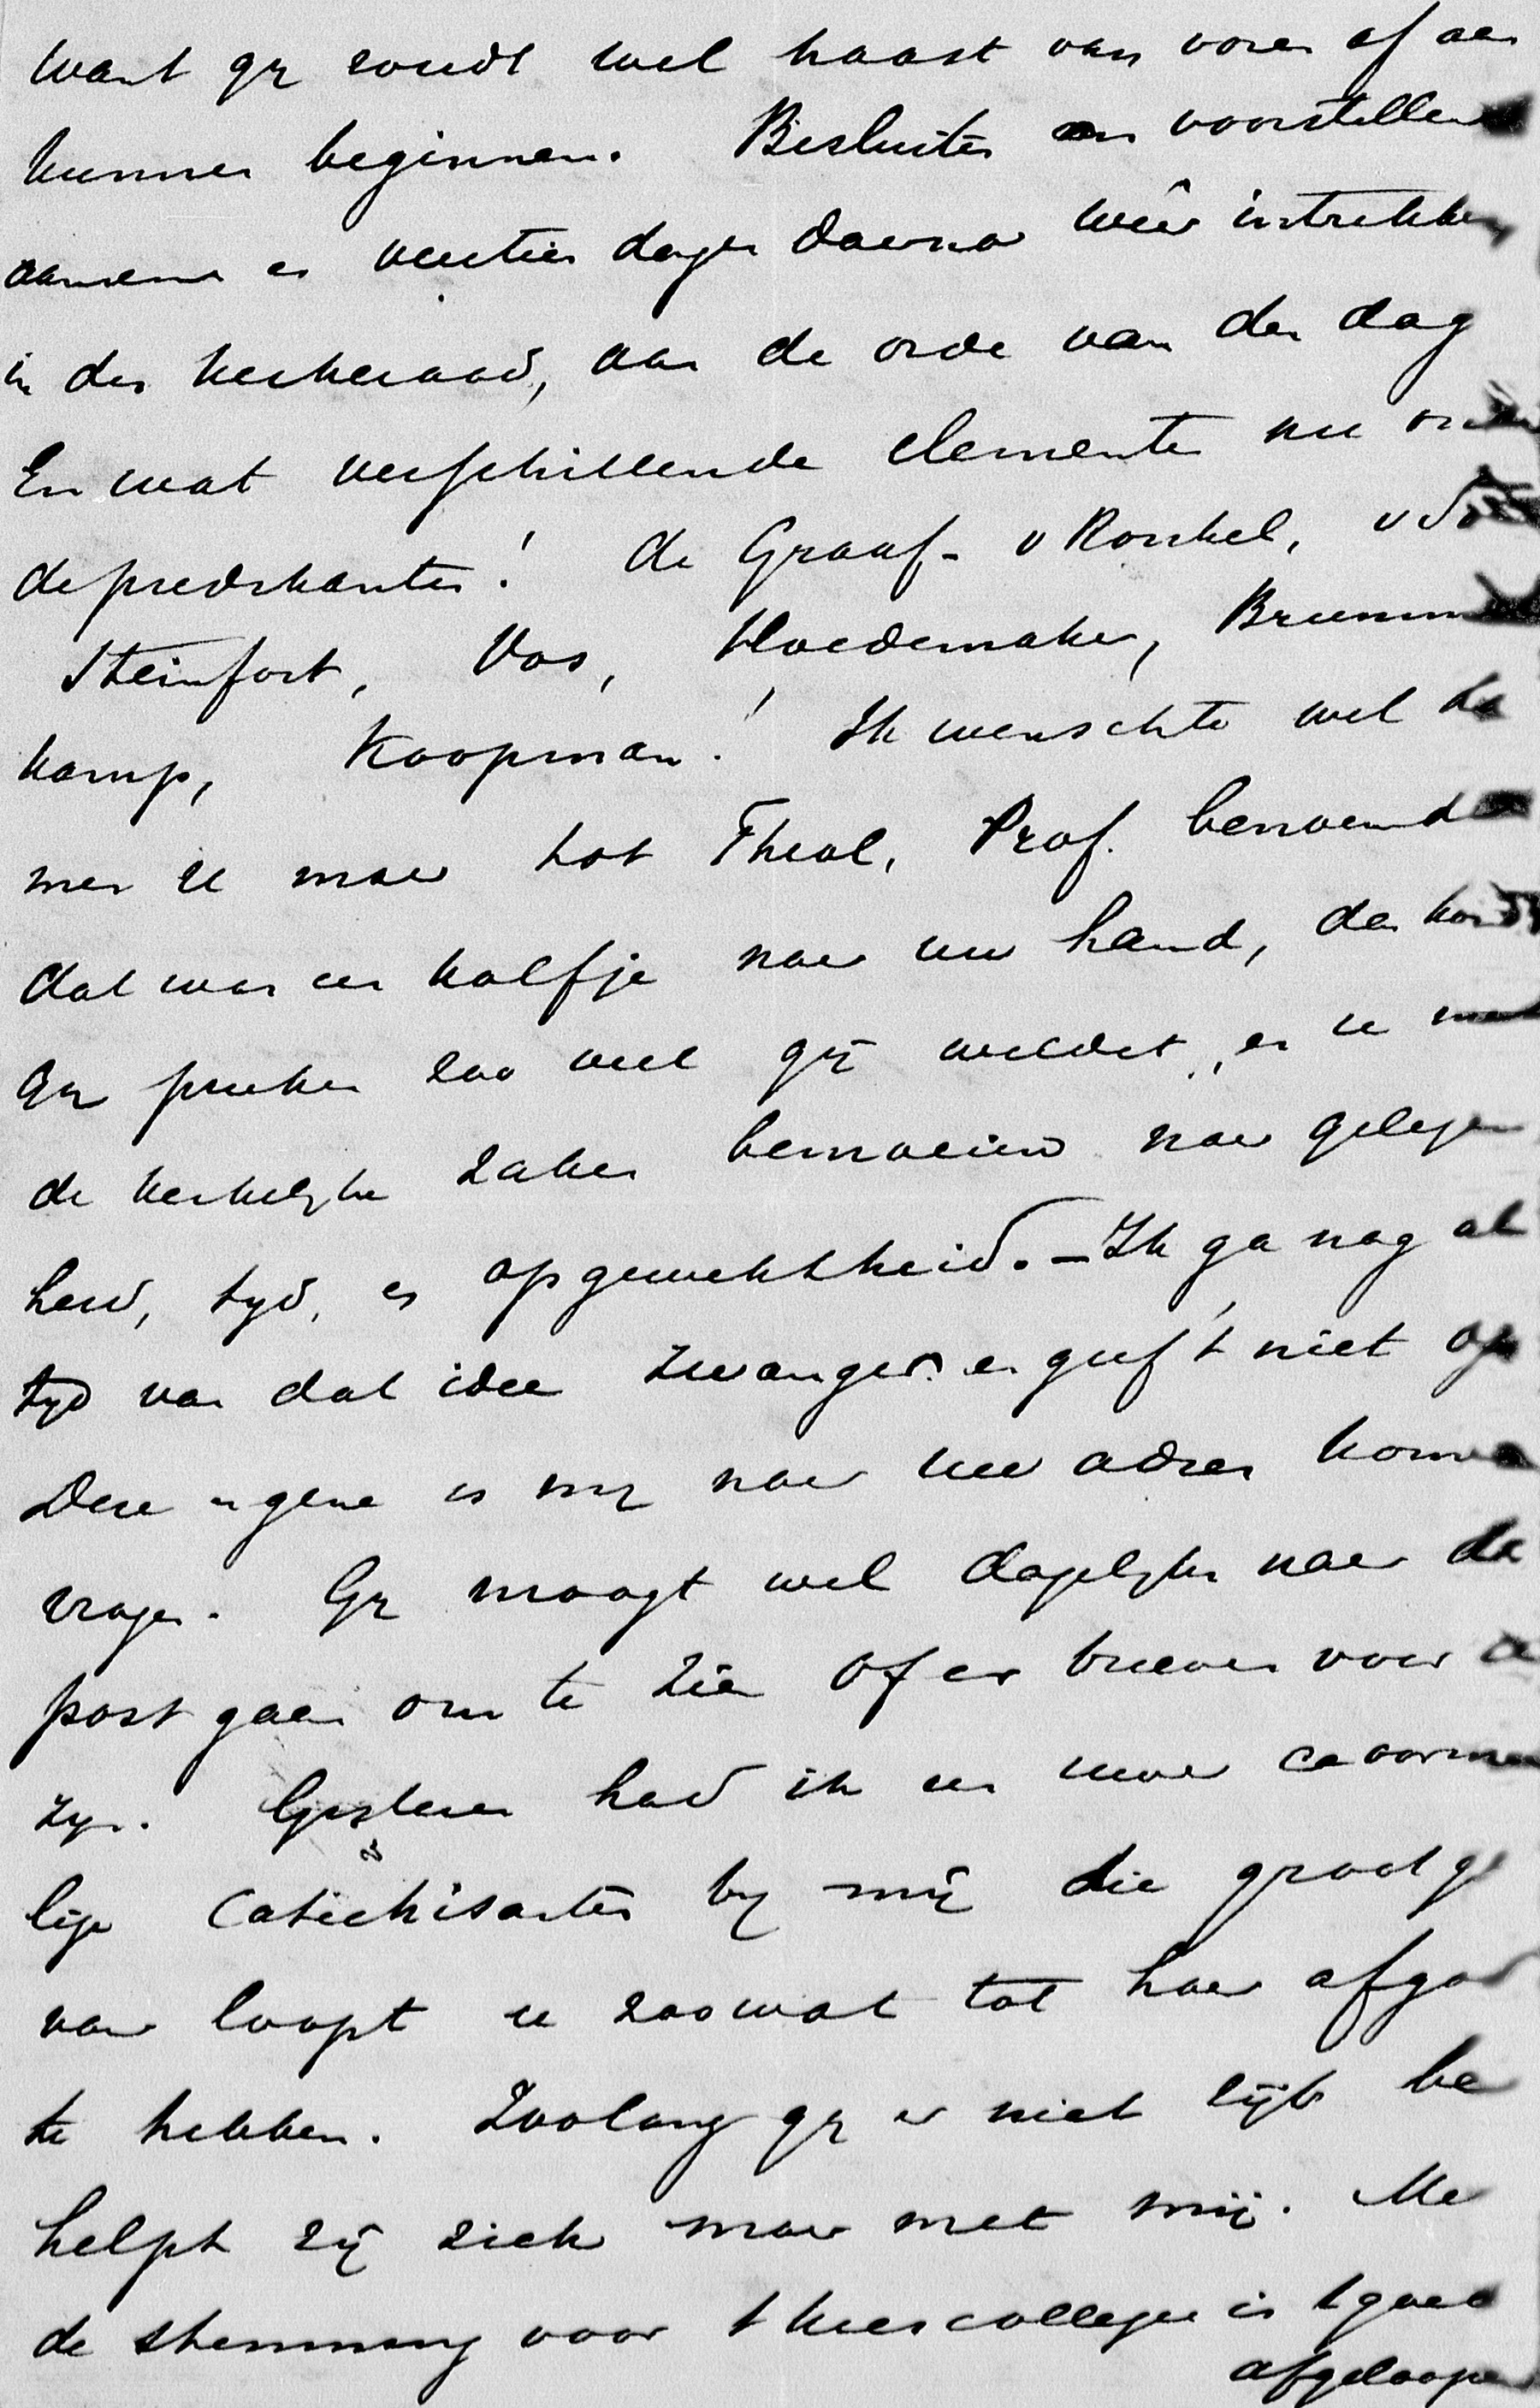 want gy zoudt wel haast van voren af aan
kunnen beginnen. Besluiten en voorstellen
aannemen en veertien dagen daarna weêr intrekken
in den kerkeraad, aan de orde van den dag
En wat verschillende elementen nu onder
de predikanten! de Graaf - v Ronkel,
Steinfort, Vos, Hoedemaker, Brummel
kamp, Koopman! Ik wenschte wel dat
men U maar tot Theol. Prof. benoemde
dat was een kolfje naar uw hand, dan kondt
gy preeken zoo veel gij wildet, en u met
de kerkelyke zaken bemoeien naar gelegen
heid, tyd, en opgewektheid. - Ik ga nog al
tyd van dat idee zwanger en geef 't niet op
Deze en gene is my naar uw adres komen
vragen. Gy moogt wel dagelyks naar de
post gaan om te zien of er brieven voor u
zyn. Gisteren had ik een uwer voorma
lige Catechisanten by mij die groot ge
vaar loopt u zoowat tot haar afgod
te hebben. Zoolang gy er niet zijt be
helpt zij zich maar met mij. Met
de stemming voor 't kiescollegie is 't goed
afgeloopen